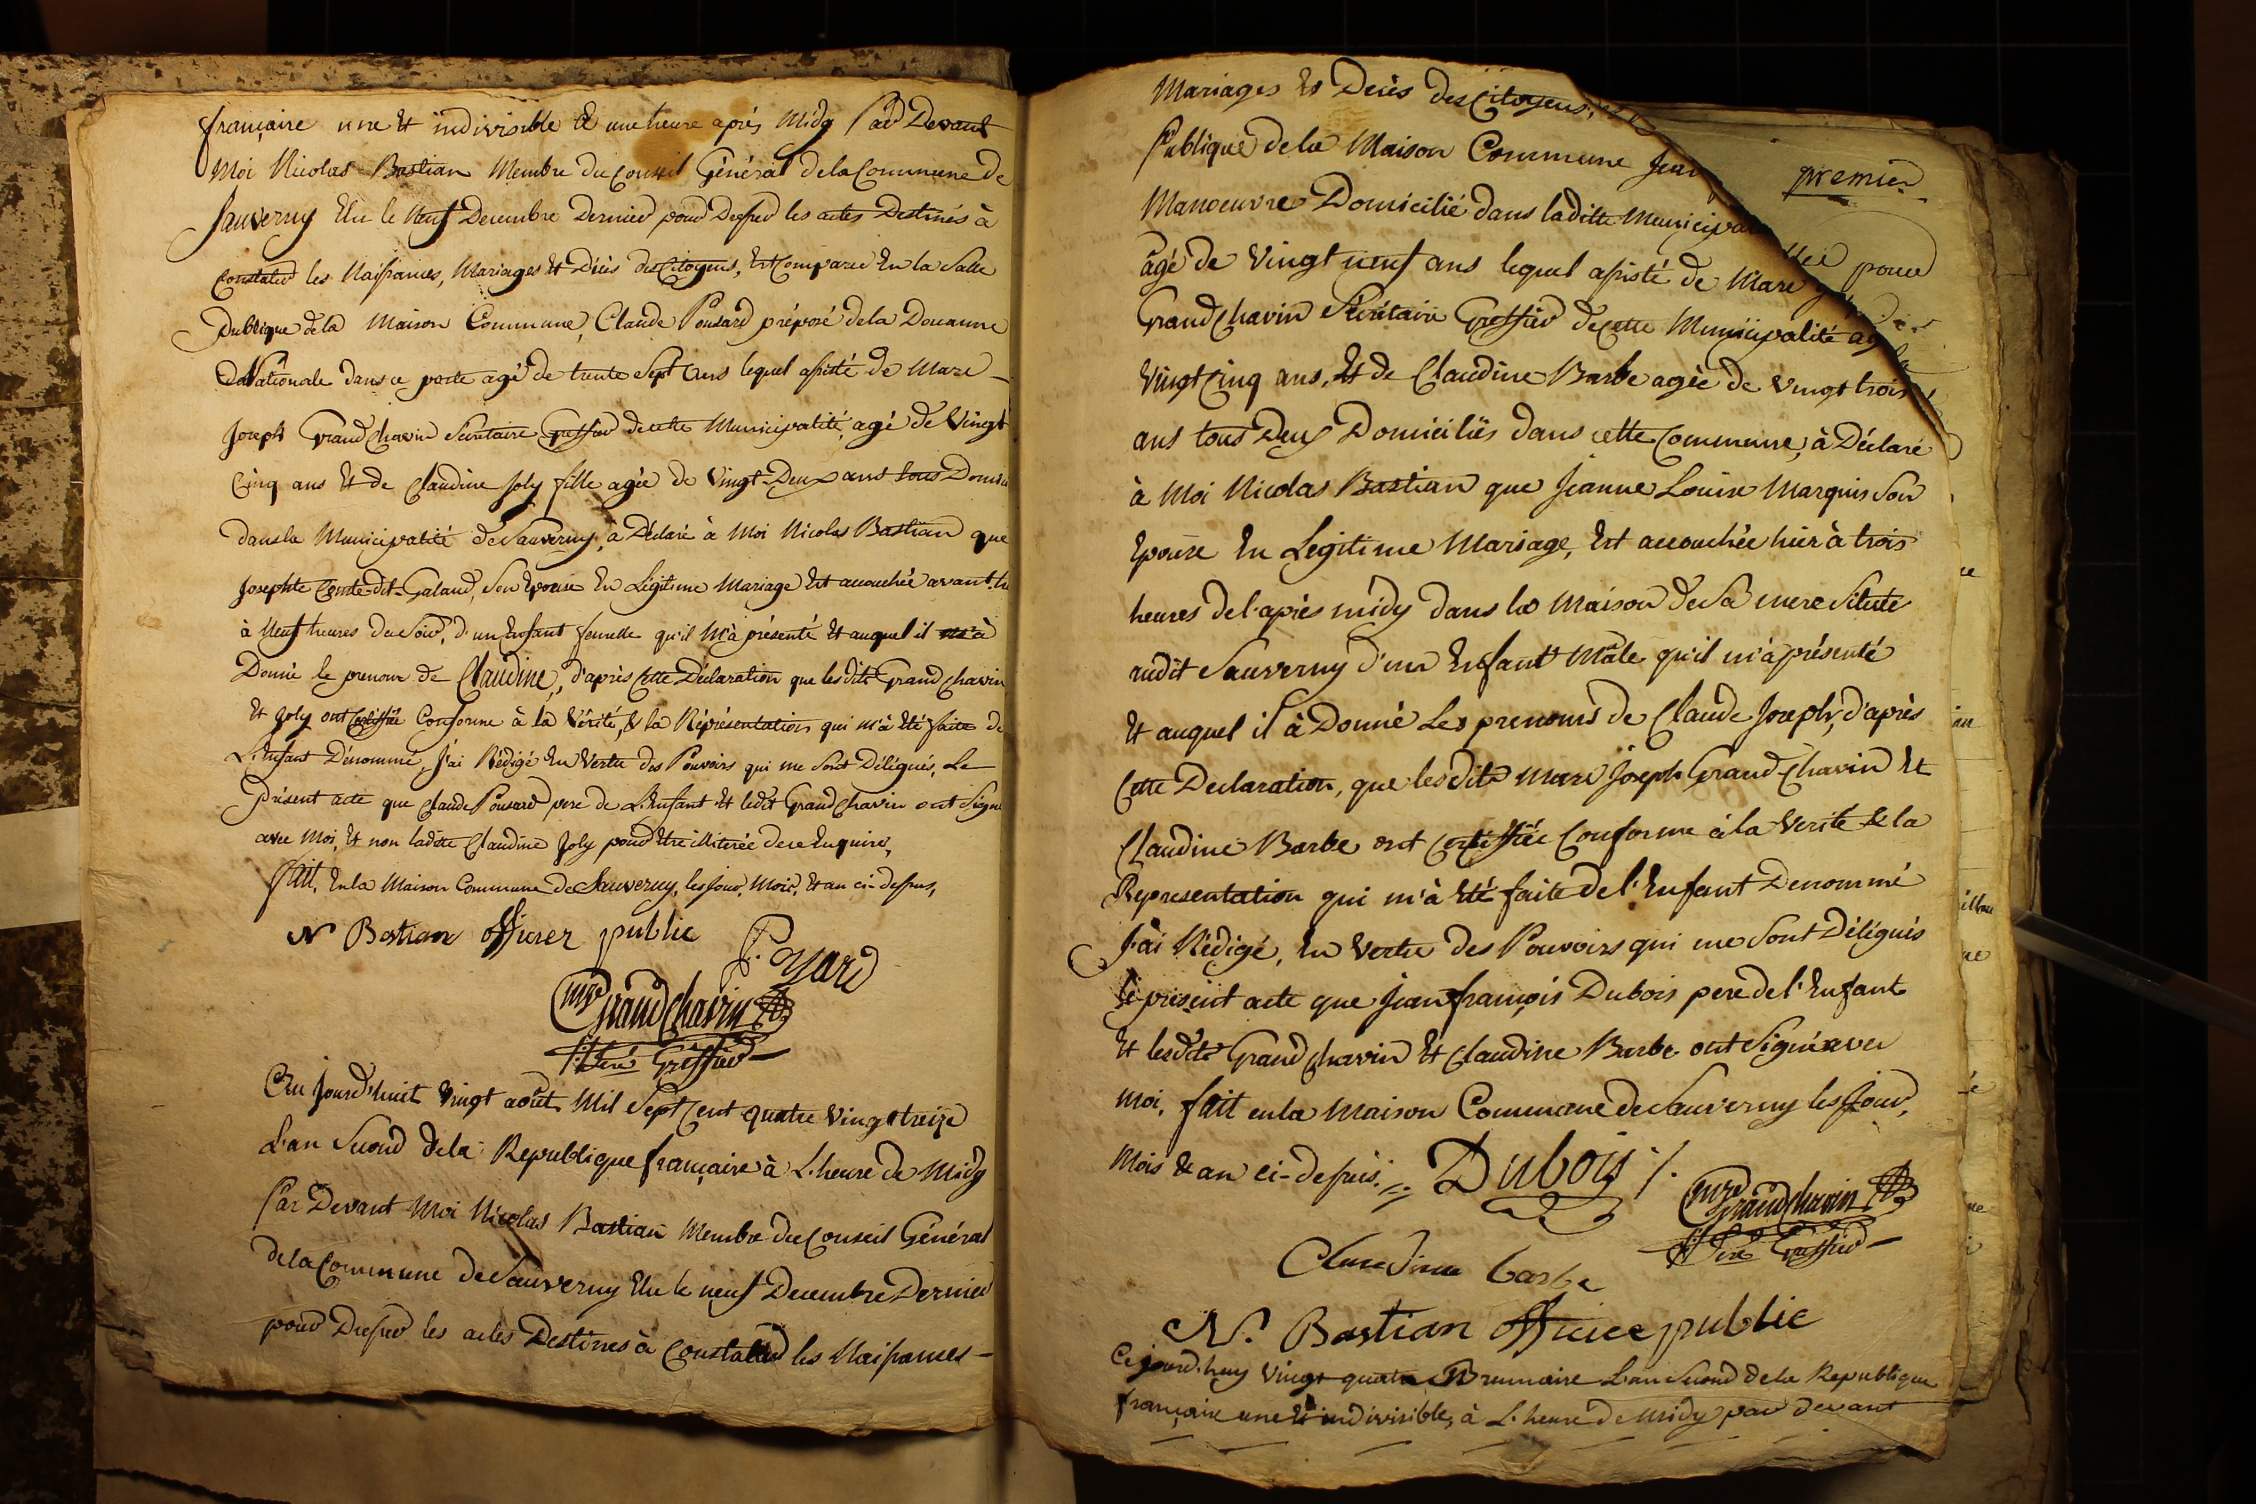 française une Et indivisible à une heure après Midy Par Devant
Moi Nicolas Bastian Membre du Conseil Général de la Commune de
Sauverny Elu le Neuf Decembre Dernier pour Dresser les actes Destinés à
Constater les Naissances, Mariages Et Décès des Citoyens, Est Comparu En la Salle
Publique de la Maison Commune, Claude Ponsard préposé de la Douanne
Nationale dans ce poste agé de trente Sept ans lequel assisté de Marc
Joseph Grand Chavin Secretaire Greffier de cette Municipalité, agé de Vingt
Cinq ans Et de Claudine Joly fille agée de Vingt-Deux ans tous
dans la Municipalité de Sauverny, à Déclaré à Moi Nicolas Bastian que
Josephte Comte-dit-Galand, Son Epouse En Légitime Mariage Est accouchée
à Neuf heures du Soir, d'un Enfant femelle qu'il M'à présenté Et auquel il à
Donné le prenom de Claudine, d'après Cette Déclaration que lesdits Grand Chavin
Et Joly ont Certiffiée Conforme à la Vérité, & la Réprésentation qui m'à Eté faite de
L'Enfant Dénommé, J'ai Rédigé En Vertu des Pouvoirs qui me Sont Délégués, Le
Présent acte que Claude Ponsard pere de L'Enfant Et ledit Grand Chavin ont Signé
avec Moi, Et non ladite Claudine Joly pour Etre illiterée de ce Enquire,
fait, En la Maison Commune de Sauverny, les Jour, Mois, Et an ci-dessus,
N Bastian officier public
Grand Chavin
Greffier
Cejourd'huit Vingt août Mil Sept Cent quatre Vingt treize
L'an Second de la Republique française à L'heure de Midy
Par Devant Moi Nicolas Bastian Membre du Conseil Général
de la Commune de Sauverny Elu le neuf Decembre Dernier
pour Dresser les actes Destinés à Constater les Naissances
Mariages Et Décès des Citoyens,
Publique de la Maison Commune Jean
premier
Manoeuvre Domicilié dans ladite
agé de Vingt neuf ans lequel assisté de Marc
pour
Grand Chavin Sécrétaire Greffier de cette Municipalité
Vingt Cinq ans, Et de Claudine Barbe agée de vingt trois
ans tous Deux Domiciliés dans cette Commune, à Déclaré
à Moi Nicolas Bastian que Jeanne Louise Marquis Son
Epouse En Legitime Mariage, Est accouchée hier à trois
heures de l'après midy dans la Maison de Sa mere Située
audit Sauverny d'un Enfant Mâle qu'il m'à présenté
Et auquel il à Donné Les prenoms de Claude Joseph, d'après
Cette Declaration, que lesdits Marc Joseph Grand-Chavin Et
Claudine Barbe ont Certiffiée Conforme à la Verité & la
Representation qui m'à Eté faite de l'Enfant Denommé
J'ai Rédigé, En Vertu des Pouvoirs qui me Sont Délégués
le présent acte que Jean françois Dubois pere de l'Enfant
Et lesdits Grand Chavin Et Claudine Barbe ont Signé avec
moi, fait en la Maison Commune de Sauverny les Jour,
Mois & an ci-dessus. Dubois
Grand Chavin
Greffier
Claudine barbe
N. Bastian officice public
Cejourd'huy Vingt quatre Brumaire L'an Second de la Republique
française une Et indivisible, à L'heure de Midy par devant